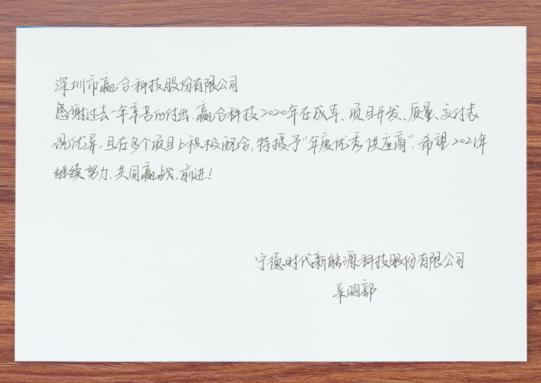 深圳市赢合科技股份有限公司
感谢过去一年辛苦的付出，赢合科技2020年在成本、项目开发、质量、交付表
现优异，且在多个项目上积极配合，特授予“年度优秀供应商”，希望2021年
继续努力，共同赢战，前进！
宁德时代新能源科技股份有限公司
采购部